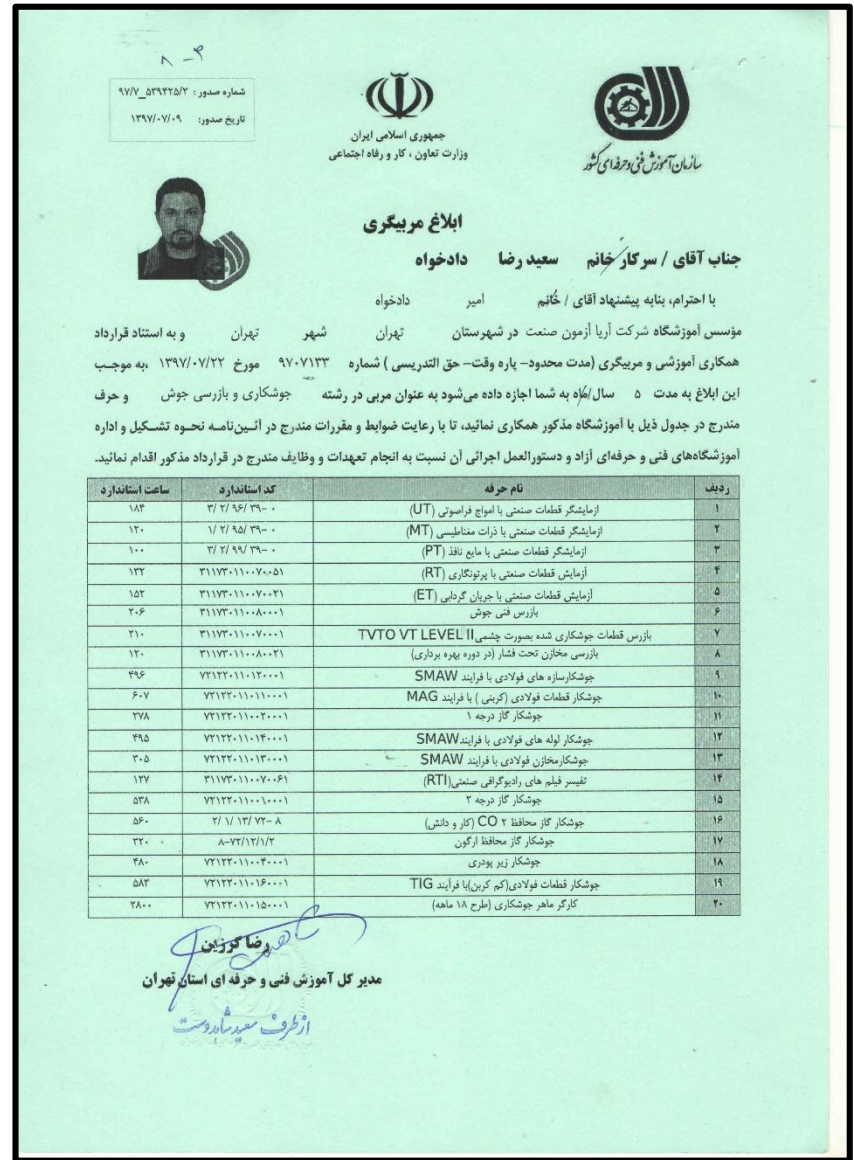 ۸-۳
شماره صدور : ۹۷/۷_۵۳۹۴۲۵/۲
تاریخ صدور: ۱۳۹۷/۰۷/۰۹
جمهوری اسلامی ایران
وزارت تعاون ، کار و رفاه اجتماعی
سازمان آموزش فنی و حرفه‌ای کشور
ابلاغ مربیگری
جناب آقای / سرکار خانم سعید رضا دادخواه
با احترام، بنابه پیشنهاد آقای / خانم امیر دادخواه
مؤسس آموزشگاه شرکت آریا آزمون صنعت در شهرستان تهران شهر تهران و به استناد قرارداد
همکاری آموزشی و مربیگری (مدت محدود– پاره وقت– حق التدریسی ) شماره ۹۷۰۷۱۳۳ مورخ ۱۳۹۷/۰۷/۲۲ ،به موجب
این ابلاغ به مدت ۵ سال/ماه به شما اجازه داده می‌شود به عنوان مربی در رشته جوشکاری و بازرسی جوش و حرف
مندرج در جدول ذیل با آموزشگاه مذکور همکاری نمائید، تا با رعایت ضوابط و مقررات مندرج در آئین‌نامه نحوه تشکیل و اداره
آموزشگاه‌های فنی و حرفه‌ای آزاد و دستورالعمل اجرائی آن نسبت به انجام تعهدات و وظایف مندرج در قرارداد مذکور اقدام نمائید.
ردیف نام حرفه کد استاندارد ساعت استاندارد
۱ ازمایشگر قطعات صنعتی با امواج فراصوتی (UT) ۳/ ۲/ ۹۶/ ۳۹– ۰ ۱۸۴
۲ ازمایشگر قطعات صنعتی با ذرات مغناطیسی (MT) ۱/ ۲/ ۹۵/ ۳۹– ۰ ۱۲۰
۳ ازمایشگر قطعات صنعتی با مایع نافذ (PT) ۳/ ۲/ ۹۹/ ۳۹– ۰ ۱۰۰
۴ آزمایش قطعات صنعتی با پرتونگاری (RT) ۳۱۱۷۳۰۱۱۰۰۷۰۰۵۱ ۱۳۲
۵ آزمایش قطعات صنعتی با جریان گردابی (ET) ۳۱۱۷۳۰۱۱۰۰۷۰۰۲۱ ۱۵۲
۶ بازرس فنی جوش ۳۱۱۷۳۰۱۱۰۰۸۰۰۰۱ ۲۰۶
۷ بازرس قطعات جوشکاری شده بصورت چشمی TVTO VT LEVEL II ۳۱۱۷۳۰۱۱۰۰۷۰۰۰۱ ۲۱۰
۸ بازرسی مخازن تحت فشار (در دوره بهره برداری) ۳۱۱۷۳۰۱۱۰۰۸۰۰۲۱ ۱۲۰
۹ جوشکارسازه های فولادی با فرایند SMAW ۷۲۱۲۲۰۱۱۰۱۲۰۰۰۱ ۴۹۶
۱۰ جوشکار قطعات فولادی (کربنی ) با فرایند MAG ۷۲۱۲۲۰۱۱۰۱۱۰۰۰۱ ۶۰۷
۱۱ جوشکار گاز درجه ۱ ۷۲۱۲۲۰۱۱۰۰۲۰۰۰۱ ۲۷۸
۱۲ جوشکار لوله های فولادی با فرایند SMAW ۷۲۱۲۲۰۱۱۰۱۴۰۰۰۱ ۴۹۵
۱۳ جوشکارمخازن فولادی با فرایند SMAW ۷۲۱۲۲۰۱۱۰۱۳۰۰۰۱ ۳۰۵
۱۴ تفیسر فیلم های رادیوگرافی صنعتی(RTI) ۳۱۱۷۳۰۱۱۰۰۷۰۰۶۱ ۱۲۷
۱۵ جوشکار گاز درجه ۲ ۷۲۱۲۲۰۱۱۰۰۱۰۰۰۱ ۵۳۸
۱۶ جوشکار گاز محافظ CO ۲ (کار و دانش) ۲/ ۱/ ۱۳/ ۷۲– ۸ ۵۶۰
۱۷ جوشکار گاز محافظ ارگون ۸–۷۲/۱۲/۱/۲ ۳۲۰
۱۸ جوشکار زیر پودری ۷۲۱۲۲۰۱۱۰۰۴۰۰۰۱ ۴۸۰
۱۹ جوشکار قطعات فولادی(کم کربن)با فرآیند TIG ۷۲۱۲۲۰۱۱۰۱۶۰۰۰۱ ۵۸۲
۲۰ کارگر ماهر جوشکاری (طرح ۱۸ ماهه) ۷۲۱۲۲۰۱۱۰۱۵۰۰۰۱ ۲۸۰۰
رضا کرزین
مدیر کل آموزش فنی و حرفه ای استان تهران
از طرف سعید شاهدوست